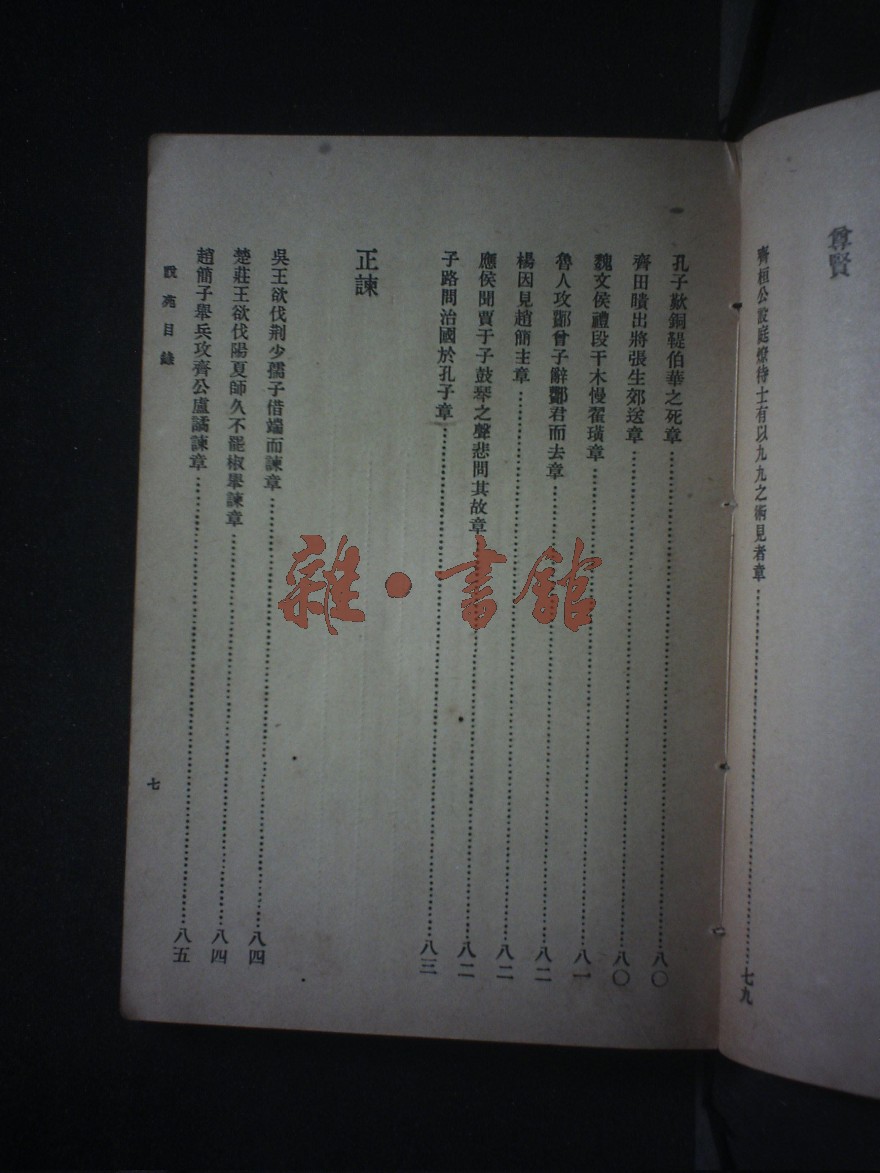 尊賢
齊桓公設庭燎待士有以九九之術見者章⋯⋯七九
孔子歎銅鞮伯華之死章⋯⋯八〇
齊田瞶出將張生郊送章⋯⋯八〇
魏文侯禮段干木慢翟璜章⋯⋯八一
魯人攻鄪曾子辭鄪君而去章⋯⋯八二
楊因見趙簡主章⋯⋯八二
應侯聞賈于子鼓琴之聲悲問其故章⋯⋯八二
子路問治國於孔子章⋯⋯八三
正諫
吳王欲伐荆少孺子借端而諫章⋯⋯八四
楚莊王欲伐陽夏師久不罷椒舉諫章⋯⋯八四
趙簡子舉兵攻齊公盧譎諫章⋯⋯八五
說苑目錄
七
雜·書館